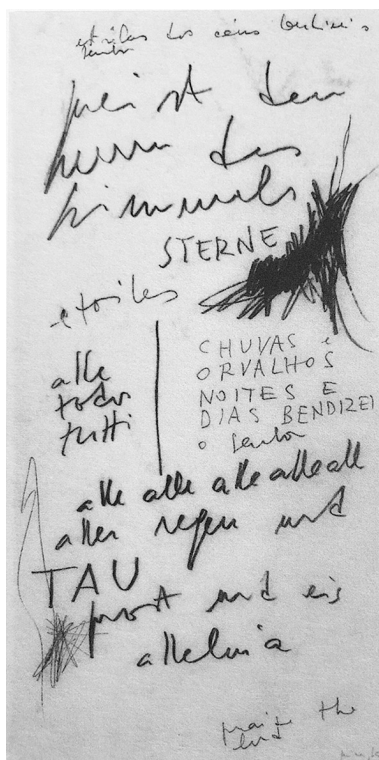 estrelas dos céus bendizei o
senhor
preist den
herrn des
himmels
STERNE
etoiles
alle
todos
tutti
CHUVAS e
ORVALHOS
NOITES E
DIAS BENDIZEI
o senhor
alle alle alle allealle
aller regen und
TAU
frost und eis
alleluia
praise the
lord